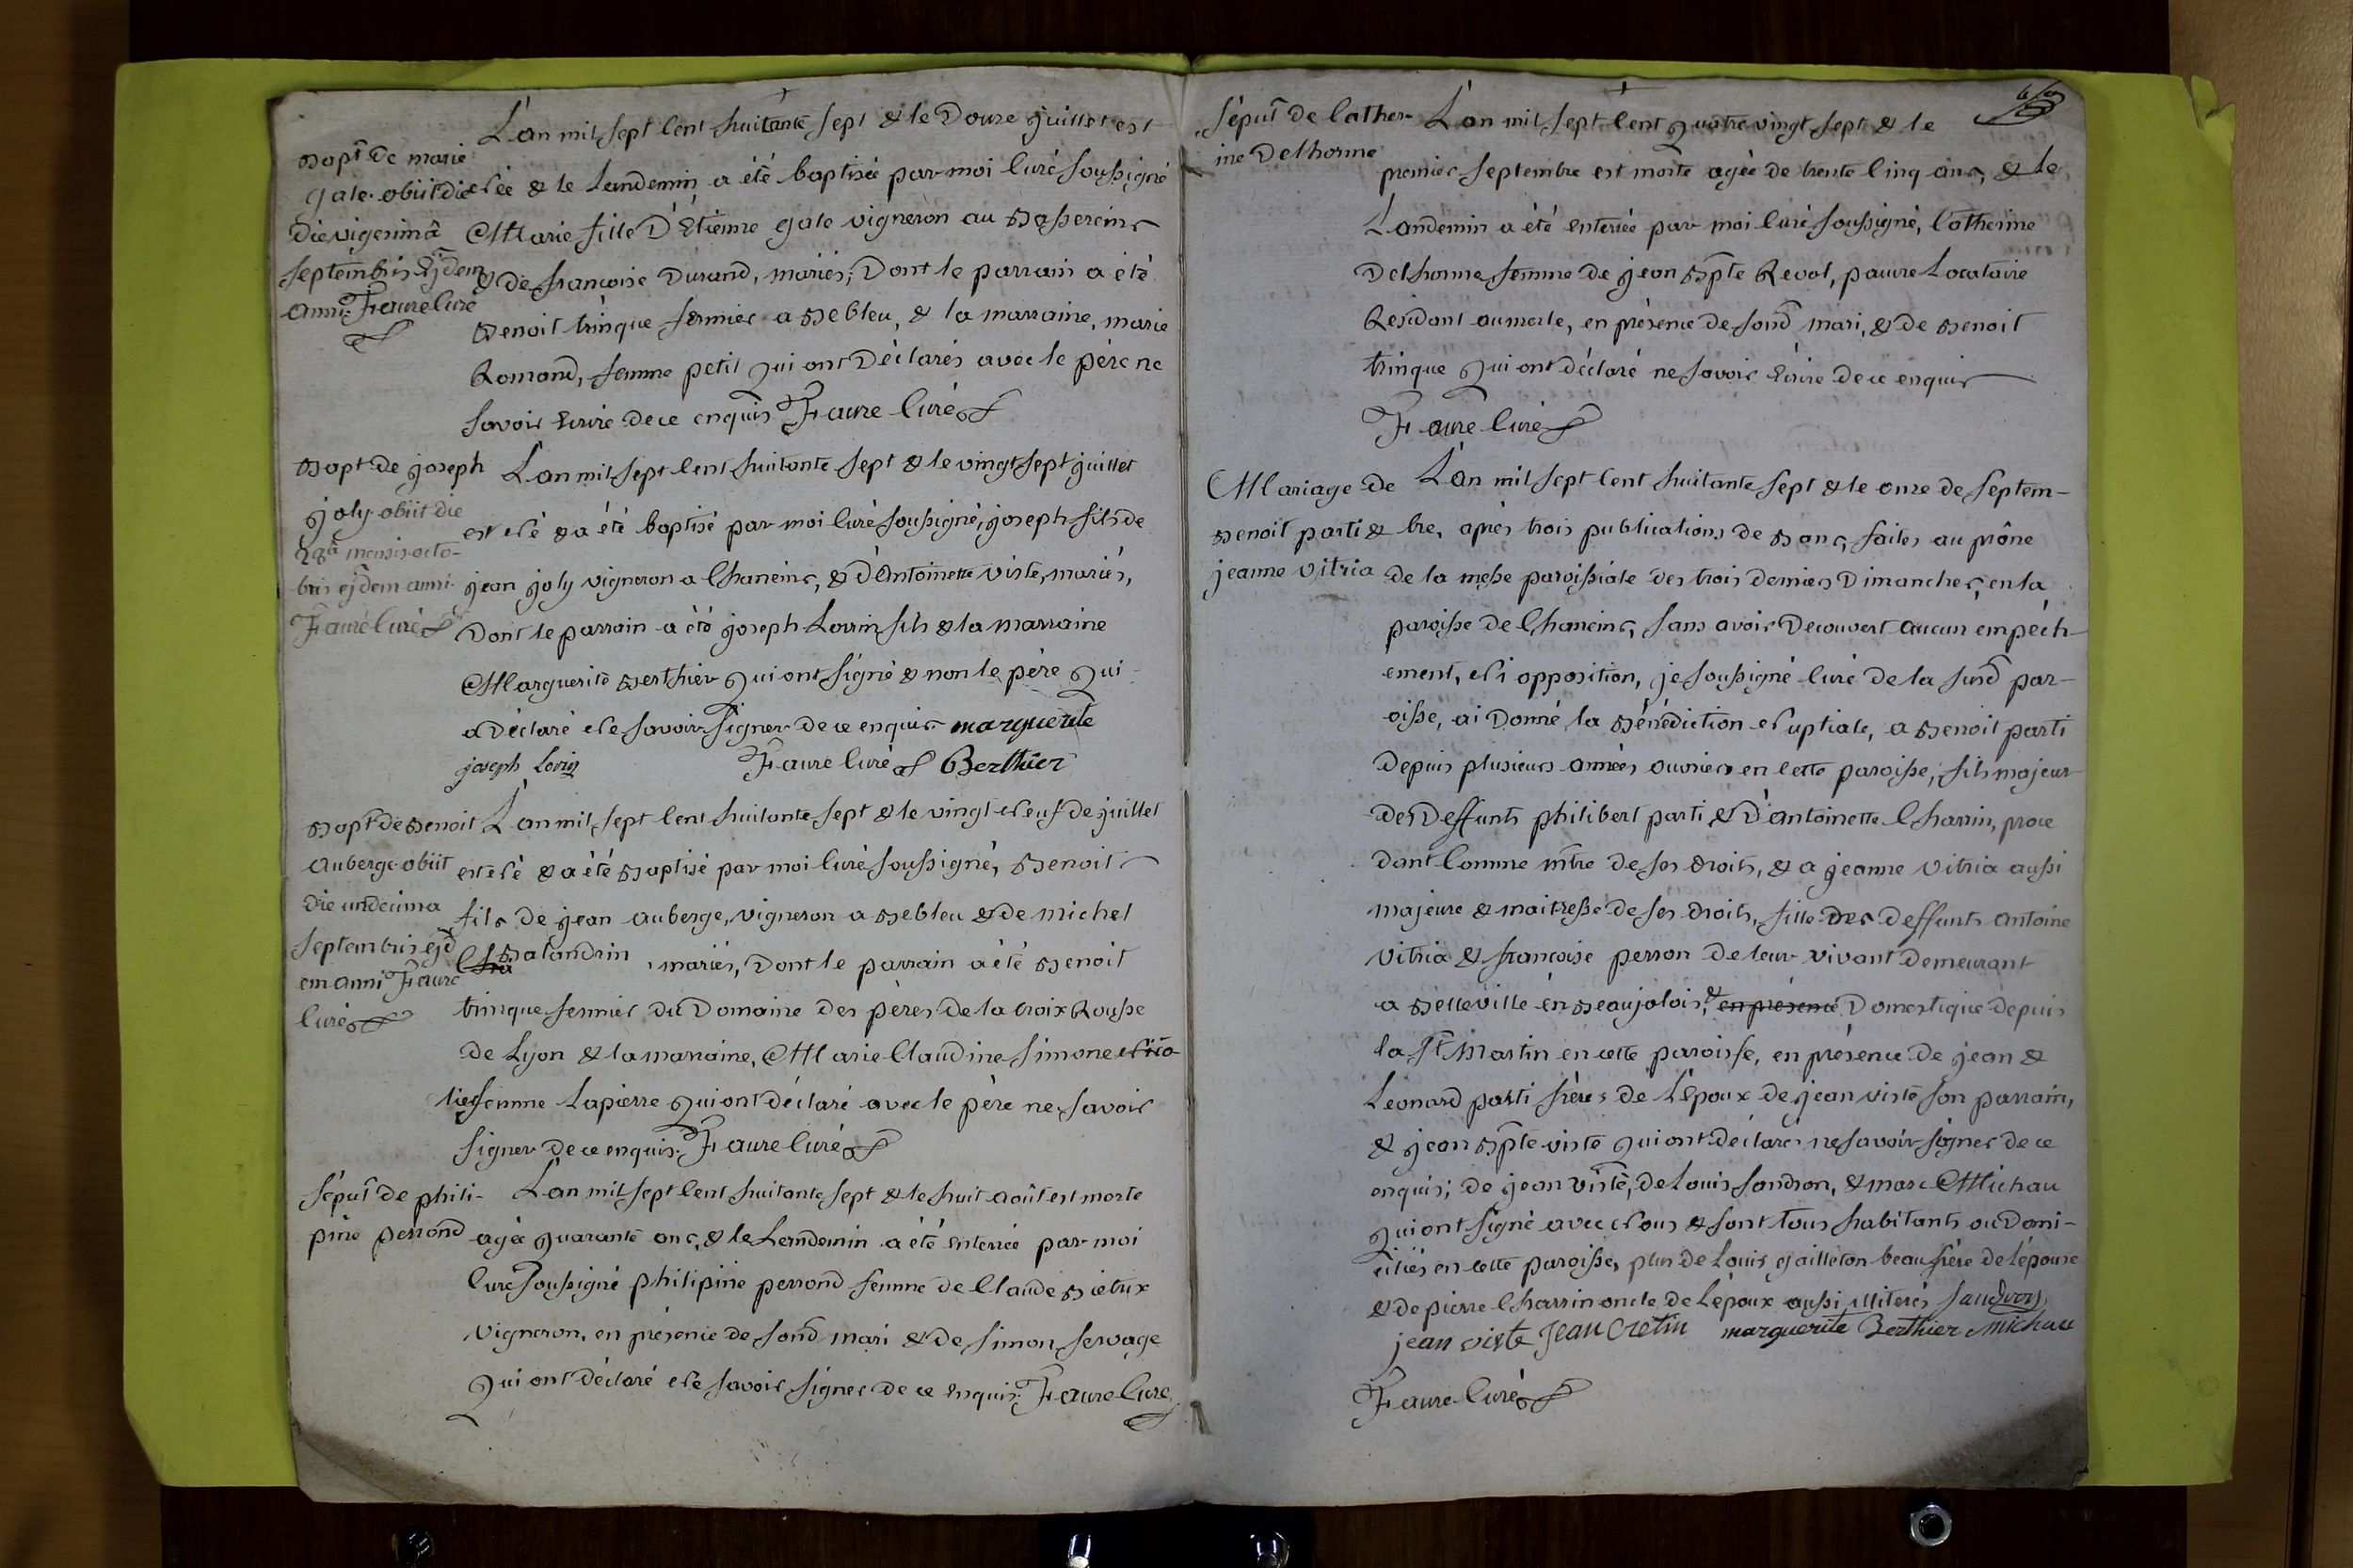 Bapt de marie
gale. obiit die
die vigesimâ
septembris ejdem
anni. Faure Curé
L'an mil sept Cent huitante sept & le Douze juillet est
née & le Landemin a été baptisée par moi Curé soussigné
Marie fille D'Étienne gale vigneron au Bassereins
& de françoise Durand, mariés; Dont le parrain a été
Benoit trinque fermier a Bebleu, & la marraine, marie
Romand, femme petit qui ont Déclarés avec le pére ne
savoir Ecrire de ce enquis Faure Curé
Bapt de joseph
joly. obiit die
28â mensis octo-
bris ejdem anni.
Faure Curé
L'an mil sept Cent huitante sept & le vingt sept juillet
est né & a été baptisé par moi Curé soussigné, joseph fils de
jean joly vigneron a Chaneins, & d'Antoinette viste, mariés,
Dont le parrain a été joseph Lorrin fils & la marraine
Marguerite Berthier qui ont signé & non le pére qui
a Déclaré ne savoir signer de ce enquis marguerite
joseph Lorin Faure Curé Berthier
Bapt de Benoit
Auberge. obiit
die undecima
septembris ejd
em anni Faure
Curé
L'an mil sept Cent huitante sept & le vingt neuf de juillet
est né & a été Baptisé par moi Curé soussigné, Benoit
fils de jean Auberge, vigneron a Bebleu & de michel
Balandrin mariés, Dont le parrain a été Benoit
trinque fermier du Domaine des péres de la Croix Rousse
de Lyon & la marraine, Marie Claudine Simone
femme Lapierre qui ont déclaré avec le père ne savoir
signer de ce enquis. Faure Curé
Sépult de phili-
pine perrond
L'an mil sept Cent huitante sept & le huit Août est morte
agée quarante ans, & le Lendemin a été Enterrée par moi
Curé soussigné philipine perrond femme de Claude Bietrix
vigneron, en présence de sond mari & de simon servage
qui ont déclaré ne savoir signer de ce Enquis. Faure Curé
Sépult de Cather-
ine Delhorme
L'an mil sept Cent quatre vingt sept & le
premier septembre est morte agée de trente Cinq ans, & le
Landemin a été Enterrée par moi Curé soussigné, Catherine
Delhorme femme de jean Bpte Revol, pauvre Locataire
Résidant au merle, en présence de sond mari, & de Benoit
trinque qui ont déclaré ne savoir Ecrire de ce enquis
Faure Curé
Mariage de
Benoit parti &
jeanne vitria
L'an mil sept Cent huitante sept & le onze de septem-
bre, après trois publications de Bans, faites au prône
de la messe paroissiale des trois derniers Dimanches, en la
paroisse de Chaneins, sans avoir Decouvert aucun empéch-
ement, ni opposition, je soussigné Curé de la susd par-
oisse, ai Donné la Bénédiction Nuptiale, a Benoit parti
Depuis plusieurs années ouvrier en Cette paroisse, fils majeur
des Deffunts philibert parti & D'antoinette Charrin, proce
dant Comme mtre de ses droits, & a jeanne vitria aussi
majeure & maitresse de ses droits, fille des deffunts antoine
vitria & françoise perron de leur vivant demeurant
a Belleville en Beaujolois, & en présence Domestique depuis
la St Martin en cette paroisse, en présence de jean &
Léonard parti frères de L'Époux de jean viste son parrain,
& jean Bpte viste qui ont déclarés ne savoir signer de ce
enquis; de jean viste, de Louis sandron, & marc Michau
qui ont signé avec Nous & sont tous habitants ou Domi-
ciliés en cette paroisse, plus de Louis gailleton beau frére de l'épouse
& de pierre Charrin oncle de L'époux aussi illiterés sandron
jean viste Jean Cretin marguerite Berthier Michau
Faure Curé